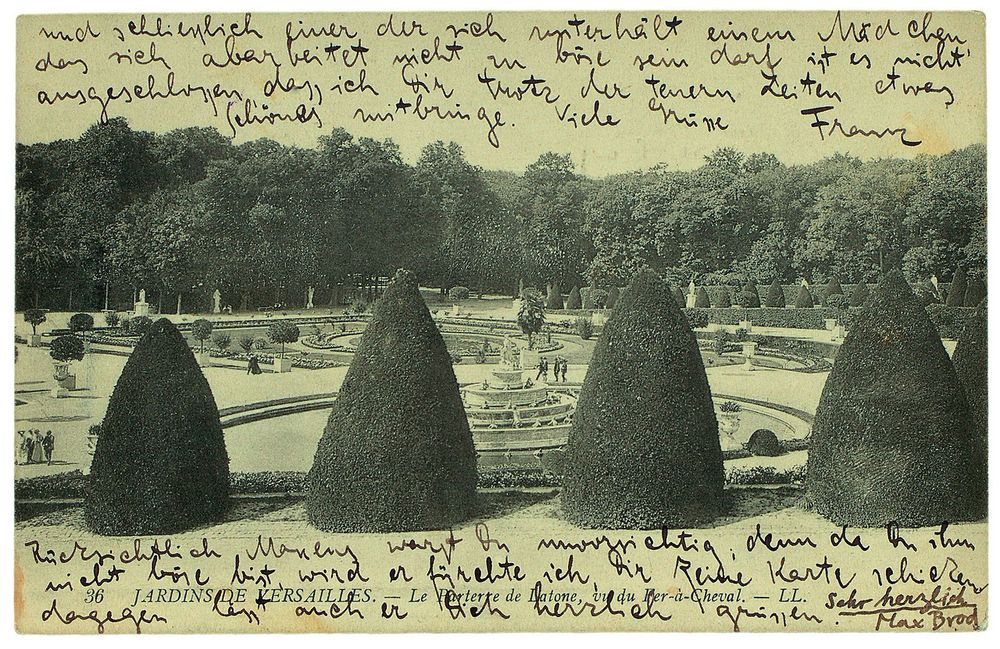 und schliesslich einer der sich unterhält einem Mädchen
das sich abarbeitet nicht zu böse sein darf ist es nicht
ausgeschlossen dass ich Dir trotz der teuern Zeiten etwas
Schönes mitbringe. Viele Grüsse Franz
Rücksichtlich Maxens warst Du unvorsichtig, denn da Du ihm
nicht böse bist, wird er fürchte ich, Dir keine Karte schicken
36 JARDINS DE VERSAILLES. — Le Parterre de Latone, vu du Fer-à-Cheval. — LL.
dagegen lässt auch er Dich herzlich grüssen.
Sehr herzlich
Max Brod